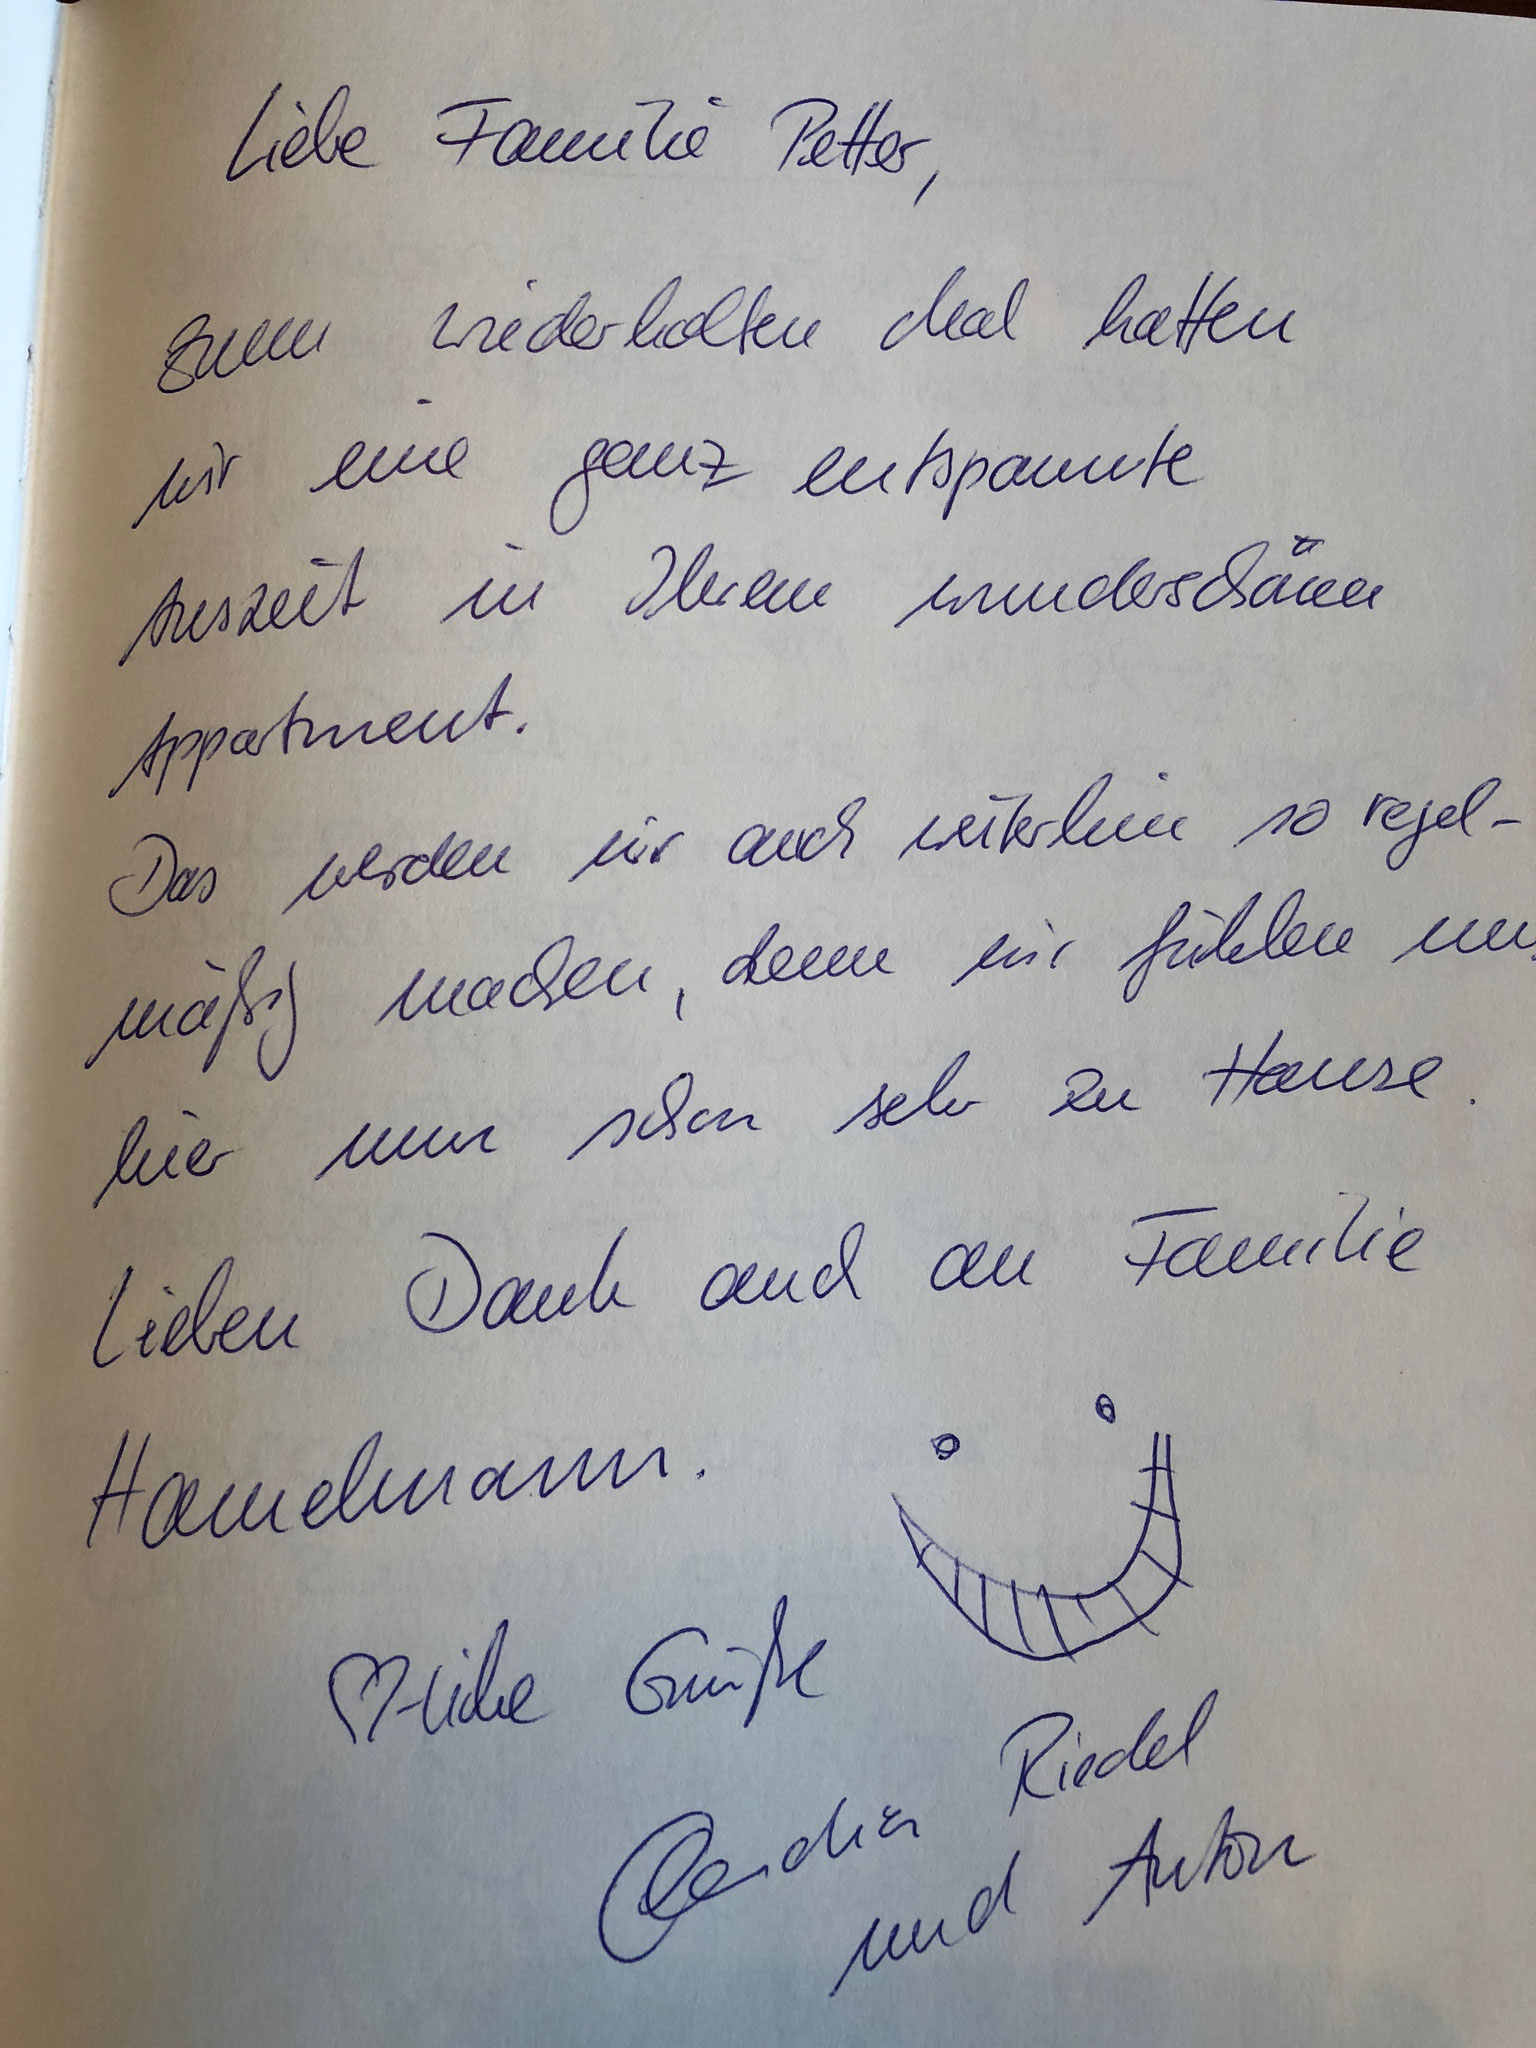 Liebe Familie Petter,
zum wiederholten Mal hatten
wir eine ganz entspannte
Auszeit in Ihrem wunderschönen
Appartment.
Das werden wir auch weiterhin so regel-
mäßig machen, denn wir fühlen uns
hier nun schon sehr zu Hause.
Lieben Dank auch an Familie
Hamelmann.
♡-liche Grüße
Claudia Riedel
und Anton